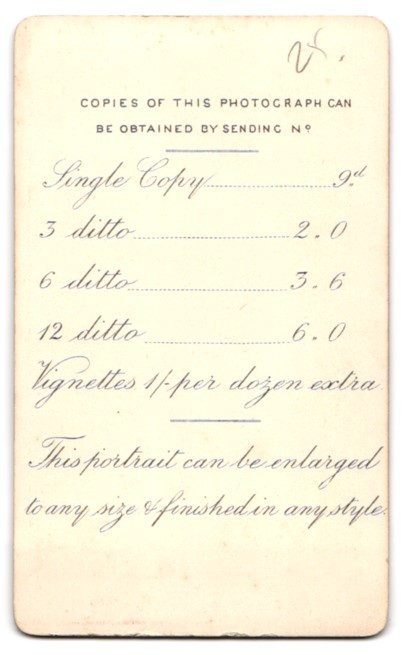 COPIES OF THIS PHOTOGRAPH CAN
BE OBTAINED BY SENDING Nº
Single Copy 9.d
3 ditto 2.0
6 ditto 3.6
12 ditto 6.0
Vignettes 1/- per dozen extra
This portrait can be enlarged
to any size & finished in any style.